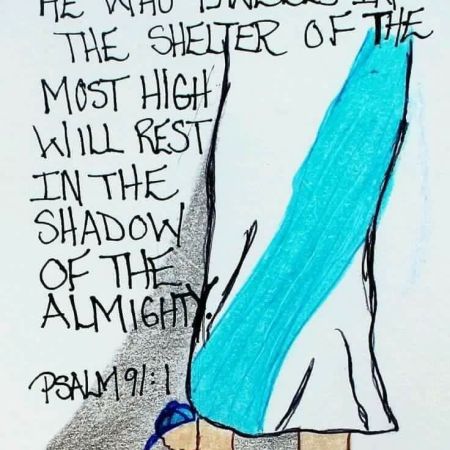 HE WHO DWELLS IN
THE SHELTER OF THE
MOST HIGH
WILL REST
IN THE
SHADOW
OF THE
ALMIGHTY.
PSALM 91:1